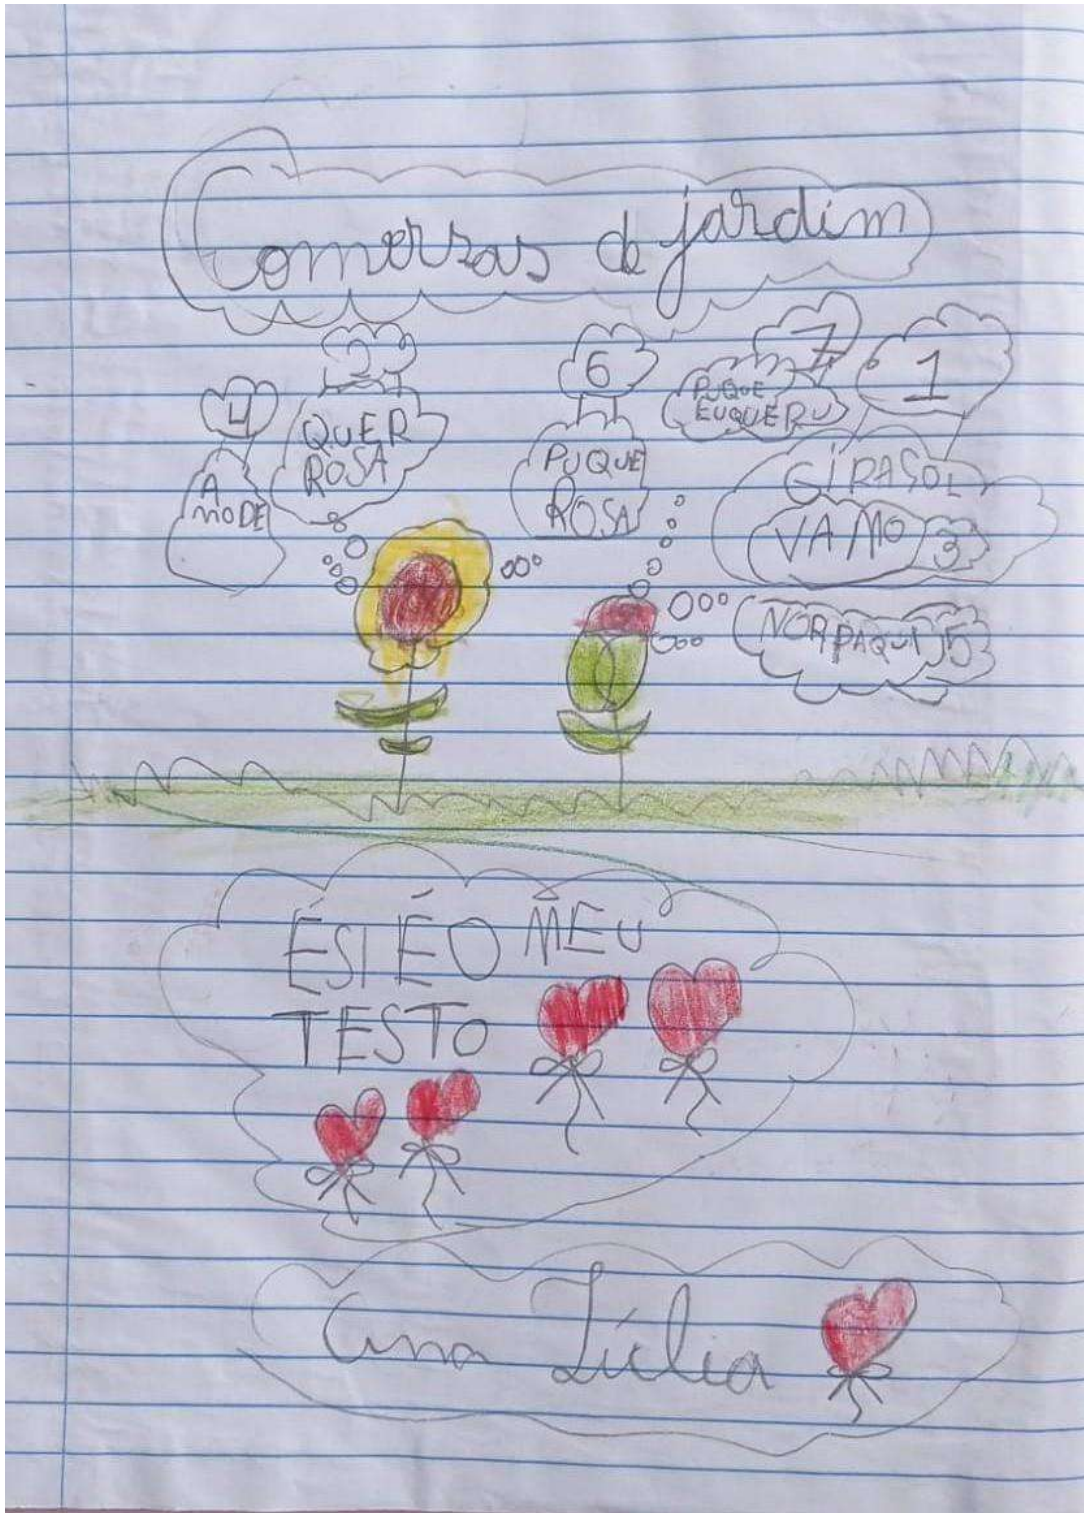 Conversas de jardim
2
6
7
1
4
QUER
ROSA
PUQUE
ROSA
PUQUE
EUQUERU
GIRASOL
VAMO 3
A
MODE
NORPAQUI 5
ESI É O MEU
TESTO
Ana Júlia